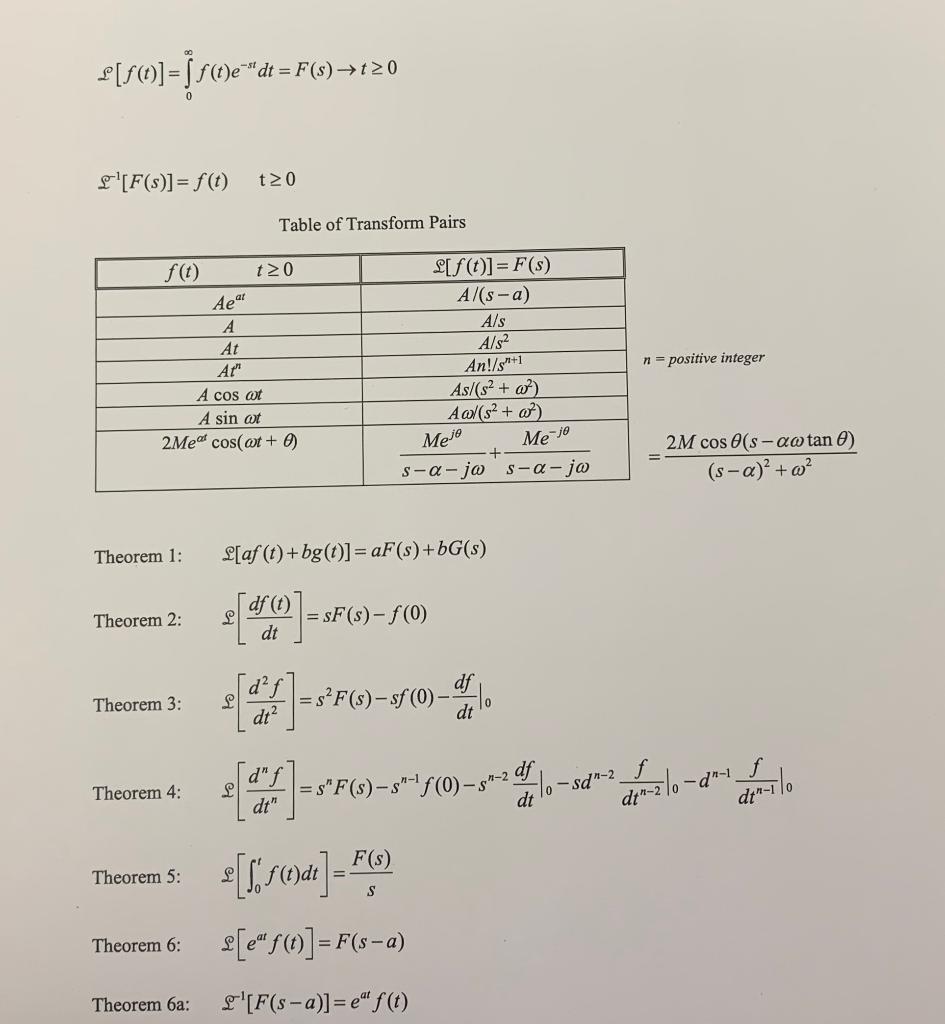 ℒ[f(t)] = ∫₀^∞ f(t)e^{-st} dt = F(s) → t ≥ 0
ℒ⁻¹[F(s)] = f(t)    t ≥ 0
Table of Transform Pairs
f(t)    t ≥ 0    ℒ[f(t)] = F(s)
Ae^{at}    A/(s – a)
A    A/s
At    A/s²
Atⁿ    An!/s^{n+1}    n = positive integer
A cos ωt    As/(s² + ω²)
A sin ωt    Aω/(s² + ω²)
2Me^{αt} cos(ωt + θ)    Me^{jθ}/(s – α – jω) + Me^{-jθ}/(s – α – jω)    = 2M cos θ(s – αω tan θ)/((s – α)² + ω²)
Theorem 1:    ℒ[af(t) + bg(t)] = aF(s) + bG(s)
Theorem 2:    ℒ[df(t)/dt] = sF(s) – f(0)
Theorem 3:    ℒ[d²f/dt²] = s²F(s) – sf(0) – df/dt|₀
Theorem 4:    ℒ[dⁿf/dtⁿ] = sⁿF(s) – s^{n-1}f(0) – s^{n-2} df/dt|₀ – sd^{n-2} f/dt^{n-2}|₀ – d^{n-1} f/dt^{n-1}|₀
Theorem 5:    ℒ[∫₀^t f(t)dt] = F(s)/s
Theorem 6:    ℒ[e^{at} f(t)] = F(s – a)
Theorem 6a:    ℒ⁻¹[F(s – a)] = e^{at} f(t)